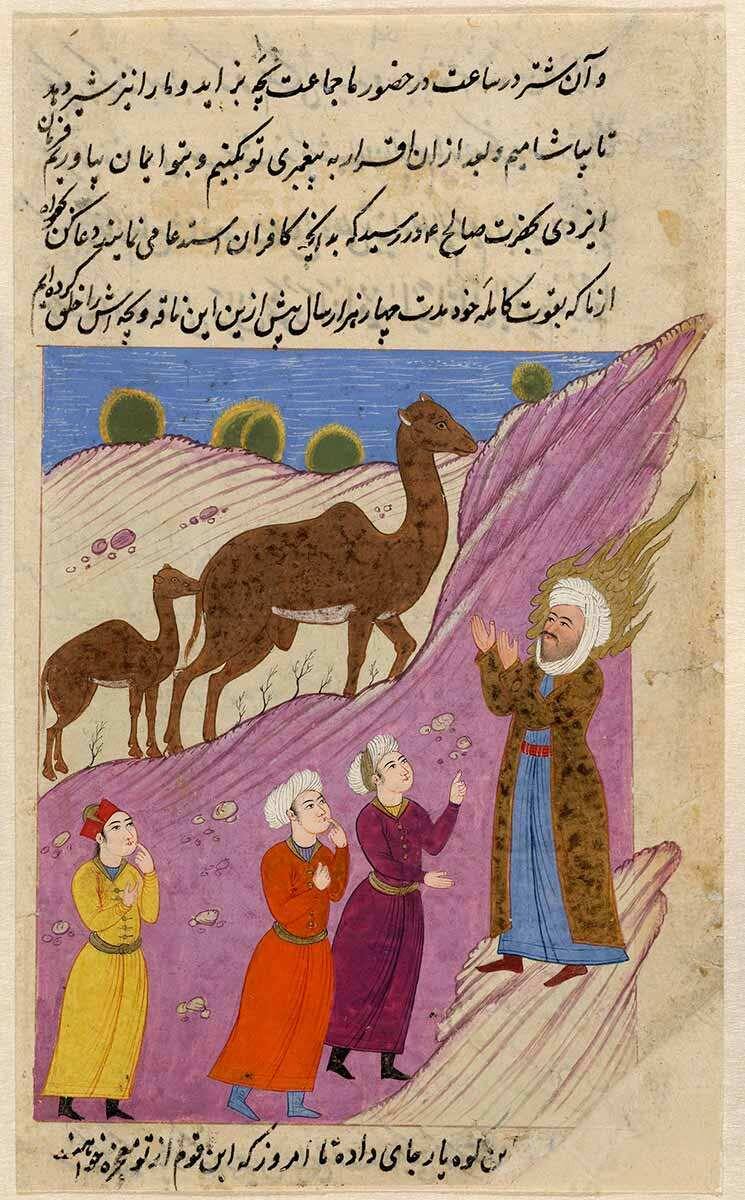 و آن شتر در ساعت در حضور ما جماعت بچه بزاید و ما را نیز شیر دهد
تا بیاشامیم و بعد از ان اقرار به پیغمبری تو بکنیم و بتو ایمان بیاوریم فرمان
ایزدی بحضرت صالح ع در رسید که بدانچه کافران استدعا می نمایند دعا کن بخواه
از ما که بقوت کامله خود مدت چهار هزار سال پیش ازین این ناقه و بچه اش را خلق کرده ایم
این کوه پاره جای داده تا امروز که این قوم از تو معجزه خواهند